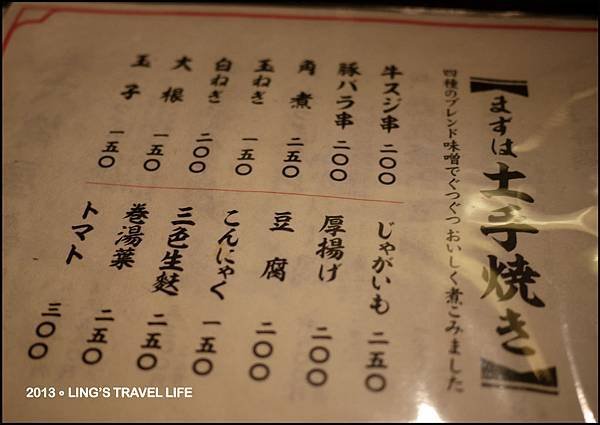 まずは土手焼き
四種のブレンド味噌でぐつぐつおいしく煮こみました
牛スジ串 二〇〇
豚バラ串 二〇〇
角煮 二五〇
玉ねぎ 一五〇
白ねぎ 二〇〇
大根 一五〇
玉子 一五〇
じゃがいも 二五〇
厚揚げ 二〇〇
豆腐 二〇〇
こんにゃく 一五〇
三色生麩 二五〇
巻湯葉 二五〇
トマト 三〇〇
2013 LING'S TRAVEL LIFE